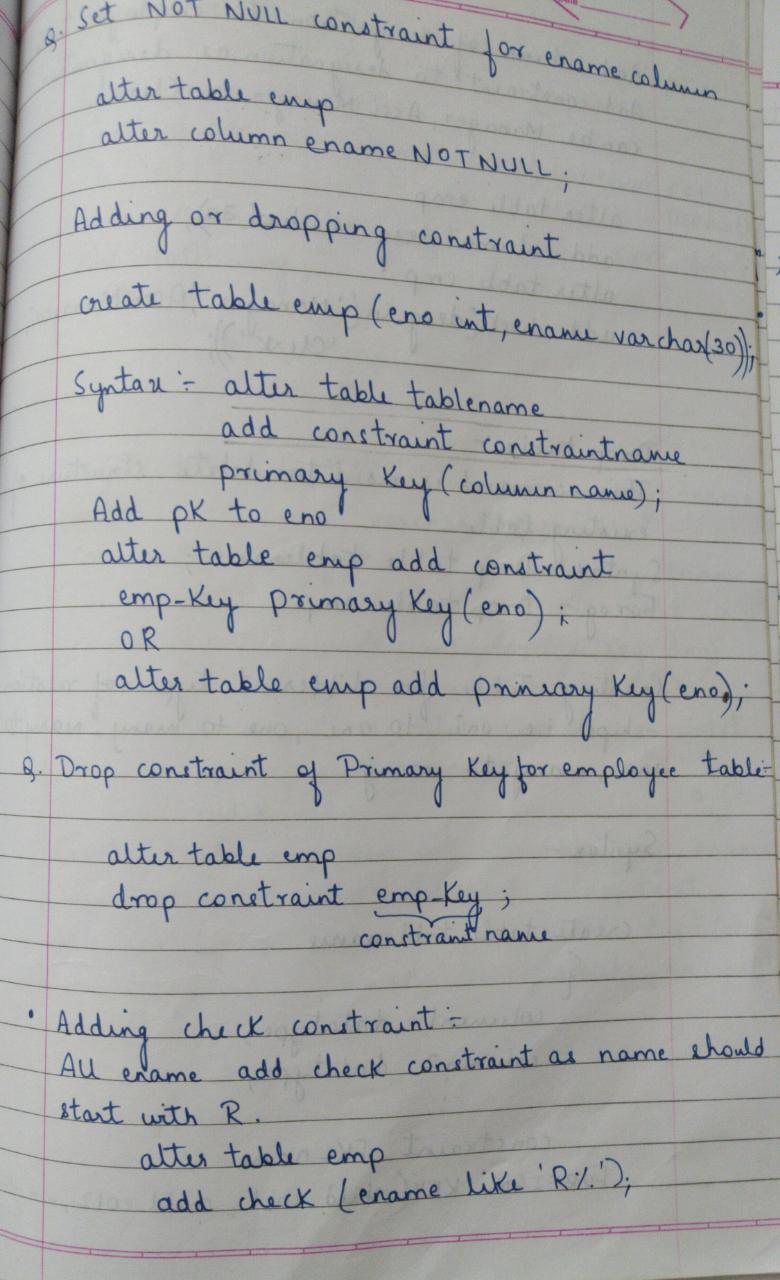 Q. Set NOT NULL constraint for ename column
alter table emp
alter column ename NOT NULL;
Adding or dropping constraint
create table emp (eno int, ename varchar(30));
Syntax :- alter table tablename
add constraint constraintname
primary key (column name);
Add pk to eno
alter table emp add constraint
emp-key primary key (eno);
OR
alter table emp add primary key (eno);
Q. Drop constraint of Primary key for employee table:-
alter table emp
drop constraint emp-key ;
constraint name
• Adding check constraint :-
All ename add check constraint as name should
start with R.
alter table emp
add check (ename like 'R%');